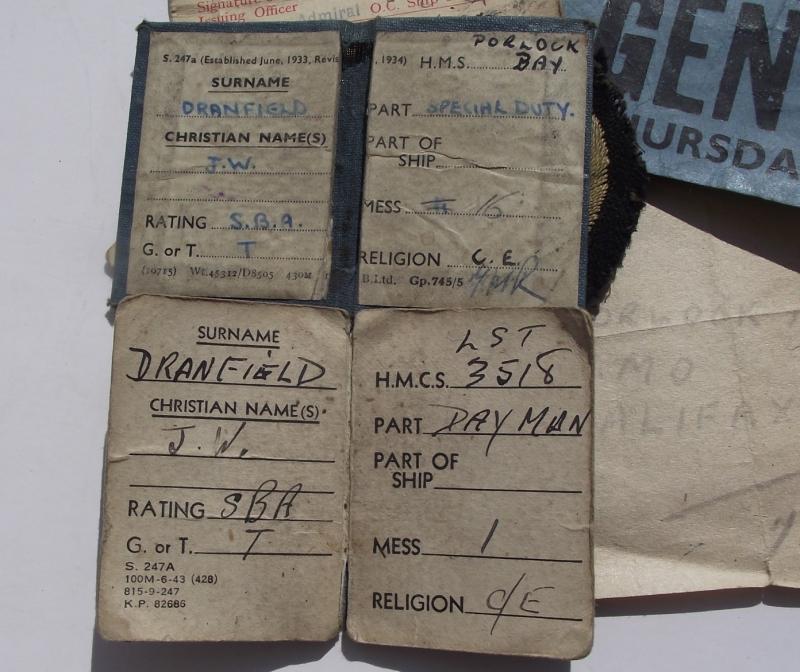 Signature
Issuing Officer
Admiral O.C. Ship
GEN
HURSDA
S. 247a (Established June, 1933, Revis
SURNAME
DRANFIELD
CHRISTIAN NAME(S)
J.W.
RATING S.B.A.
G. or T. T
(19715) Wt.45312/D8505 430M
, 1934) H.M.S. PORLOCK
BAY
PART SPECIAL DUTY.
PART OF
SHIP
MESS 16
RELIGION C.E.
B.Ltd. Gp.745/5
SURNAME
DRANFIELD
CHRISTIAN NAME(S)
J.W.
RATING SBA
G. or T. T
S. 247A
100M-6-43 (428)
815-9-247
K.P. 82686
LST
H.M.C.S. 3518
PART DAY MAN
PART OF
SHIP
MESS 1
RELIGION C/E
ORLOCK
MO
ALIFAX